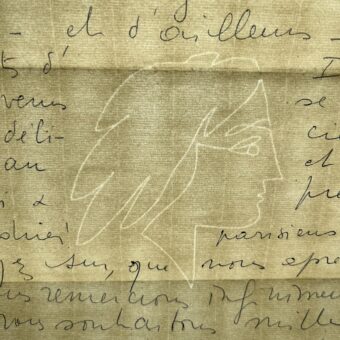 - et d'ailleurs -
ts d' I
venus se
déli- ci
au et
i & pre
parisiens
ez sur, que nous epro
us remercions infiniment
vous souhaitons mille